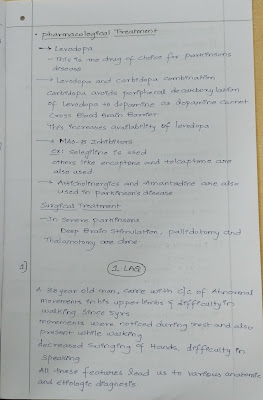 • Pharmacological Treatment
→ Levodopa
- This is the drug of choice for parkinsons
disease
→ Levodopa and Carbidopa combination
Carbidopa avoids peripheral decarboxylation
of levodopa to dopamine as dopamine cannot
Cross Blood Brain Barrier
This increases availability of levodopa
→ MAO-B Inhibitors
Ex: Selegiline is used
others like encaptone and tolcapone are
also used
→ Anticholinergics and Amantadine are also
used in parkinson's disease
Surgical Treatment
- In Severe Parkinsons
Deep Brain Stimulation, pallidotomy and
Thalamotomy are done
1]
1 LAQ
A 38 year old man, came with c/c of Abnormal
movements in his upper limbs & difficulty in
walking since 5yrs
movements were noticed during rest and also
present while walking
decreased swinging of Hands, difficulty in
speaking
All these features lead us to various anatomic
and etiologic diagnosis